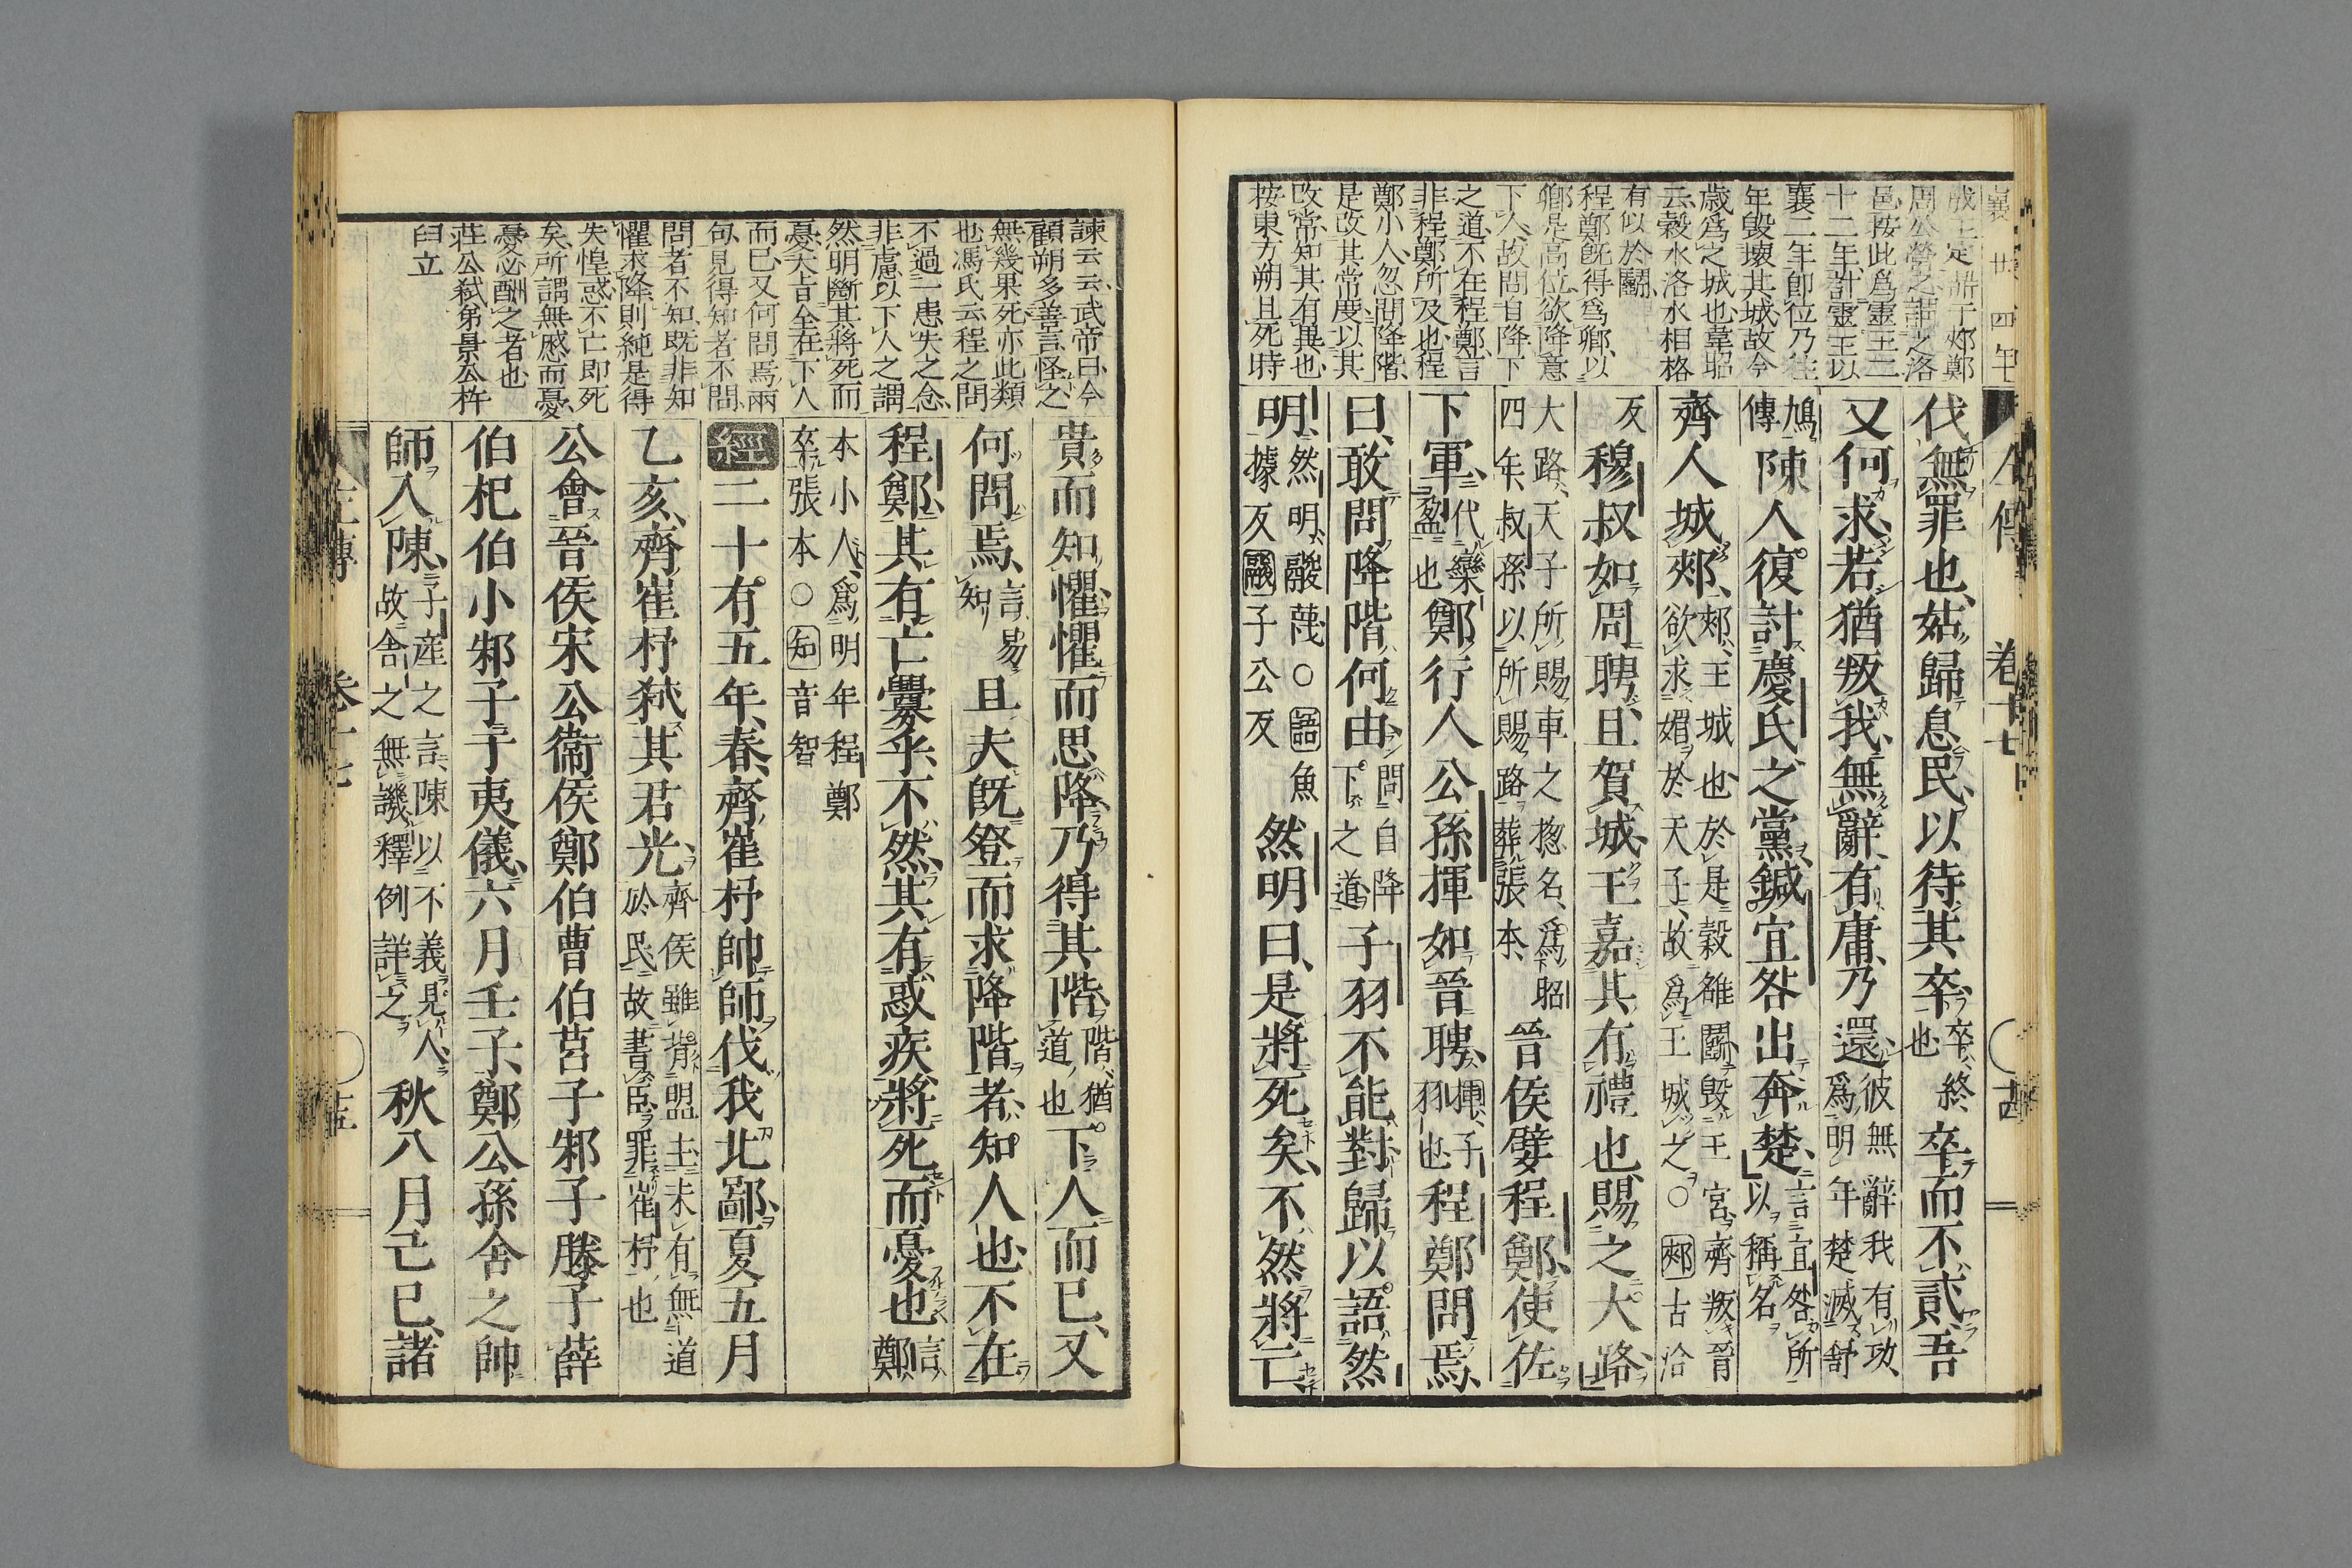 襄廿四年
成王定鼎于郟鄏
周公營之謂之洛
邑按此爲靈王三
十二年計靈王以
襄二年卽位乃往
年毁壞其城故今
歲爲之城也韋昭
云穀水洛水相格
有似於鬭
程鄭既得爲卿以
卿是高位欲降意
下人故問自降下
之道不在程鄭言
非程鄭所及也程
鄭小人忽問降階
是改其常度以其
改常知其有異也
按東方朔且死時
伐無罪也姑歸息民以待其卒卒終也卒而不貳吾
又何求若猶叛我無辭有庸乃還彼無辭我有功爲明年楚滅舒
鳩傳陳人復討慶氏之黨鍼宜咎出奔楚言宜咎所以稱名
齊人城郟郟王城也於是穀雒鬭毁王宮齊叛晉欲求媚於天子故爲王城之○郟古洽
反穆叔如周聘且賀城王嘉其有禮也賜之大路
大路天子所賜車之揔名爲昭四年叔孫以所賜路葬張本晉侯嬖程鄭使佐
下軍代欒盈也鄭行人公孫揮如晉聘揮子羽也程鄭問焉
曰敢問降階何由問自降下之道子羽不能對歸以語然
明然明鬷蔑○語魚據反鬷子公反然明曰是將死矣不然將亡
左傳
卷十七
十四
諫云云武帝曰今
顧朔多善言怪之
無幾果死亦此類
也馮氏云程之問
不過一患失之念
非慮以下人之謂
然明斷其將死而
憂大旨全在下人
而已又何問焉兩
句見得知者不問
問者不知既非知
懼求降則純是得
失惶惑不亡卽死
矣所謂無慼而憂
憂必酬之者也
莊公弑弟景公杵
臼立
貴而知懼懼而思降乃得其階階猶道也下人而已又
何問焉言易知且夫既登而求降階者知人也不在
程鄭其有亡釁乎不然其有惑疾將死而憂也言鄭
本小人爲明年程鄭卒張本○知音智
經二十有五年春齊崔杼帥師伐我北鄙夏五月
乙亥齊崔杼弑其君光齊侯雖背盟主未有無道於民故書臣罪崔杼也
公會晉侯宋公衞侯鄭伯曹伯莒子邾子滕子薛
伯杞伯小邾子于夷儀六月壬子鄭公孫舍之帥
師入陳子産之言陳以不義見入故舍之無譏釋例詳之秋八月己巳諸
左傳
卷十七
十五